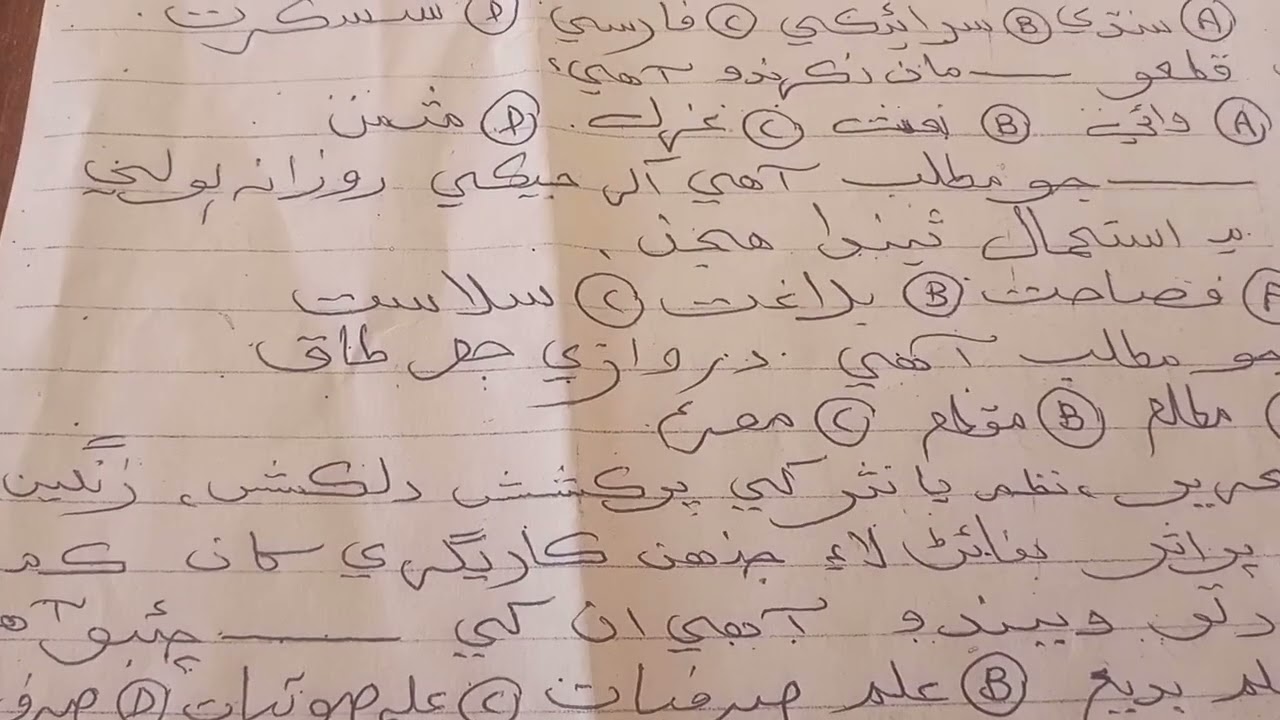 Ⓐ سنڌي Ⓑ سرائيڪي Ⓒ فارسي Ⓓ سسڪرت
قطعو ـــــ مان نڪرندو آهي؟
Ⓐ وائي Ⓑ نعت Ⓒ غزل Ⓓ مثمن
ـــــ جو مطلب آهي اُهي جيڪي روزانه ٻولي
۾ استعمال ٿيندا هجن.
فصاحت Ⓑ بلاغت Ⓒ سلاست
جو مطلب آهي دروازي جو طاق
مطلع Ⓑ مقطع Ⓒ مصرع
نظم يا نثر کي پرڪشش دلڪش، رنگين
پراثر بنائڻ لاءِ جنهن ڪاريگري کان ڪم
ويندو آهي ان کي ـــــ چئبو
بديع Ⓑ علم صرفيات Ⓒ علم صوتيات Ⓓ